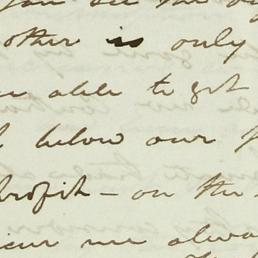 you all the
other is only
able to get
below our
profit – on the
me alwa